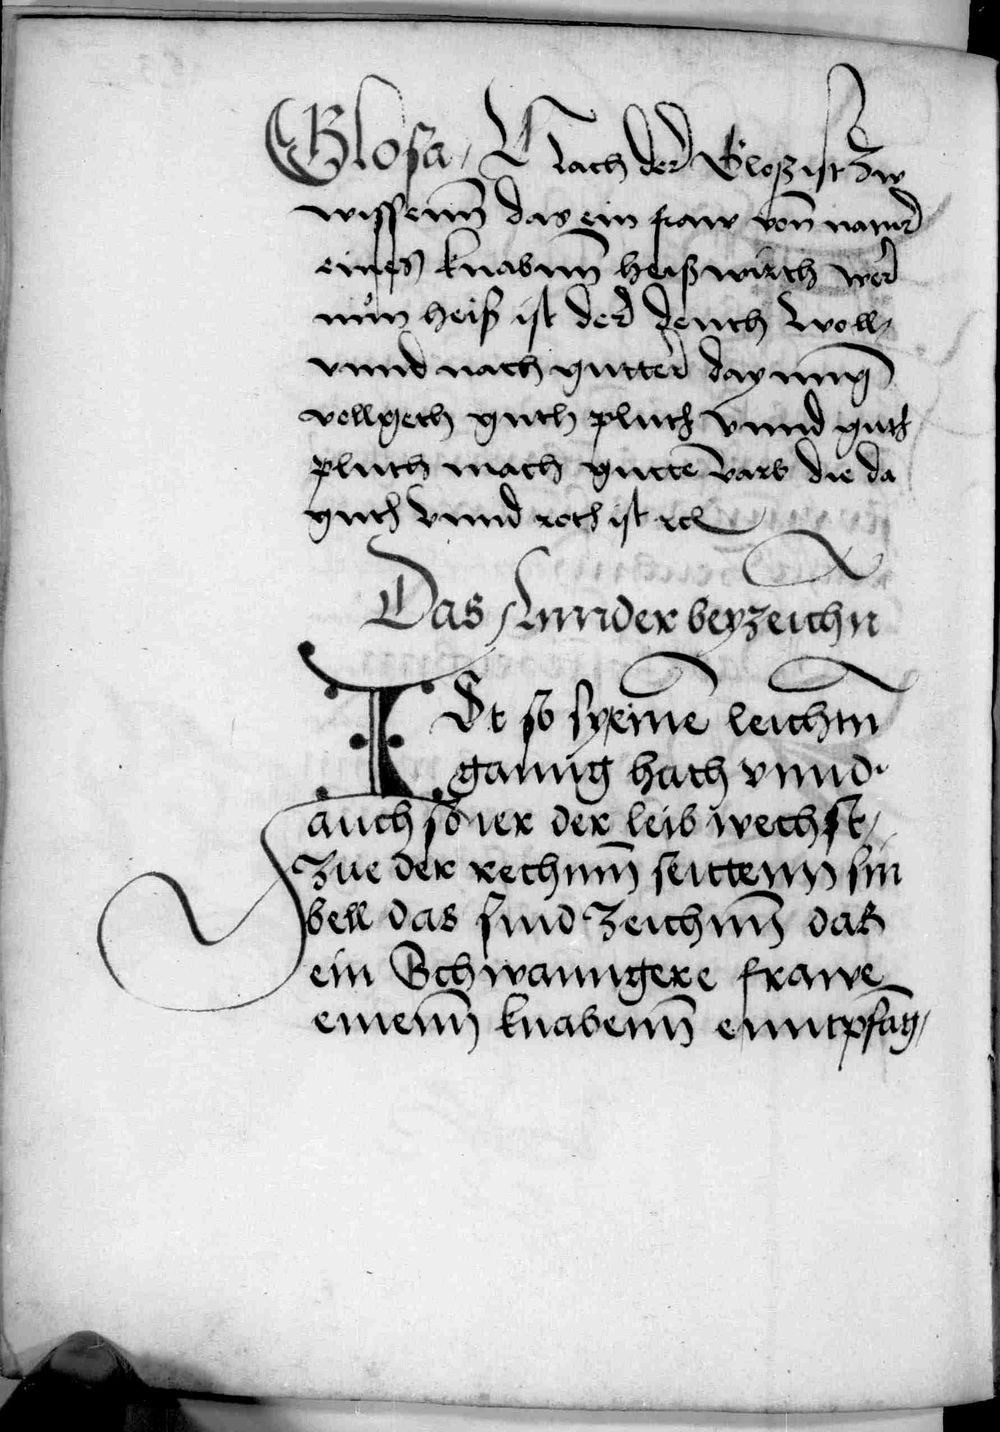 Glosa / Nach der Gloß ist zw
wissenn das ein fraw vonn natur
eines knabnn heiß wirth wer
nůn heiß ist der deuth woll /
vnnd nach gutter dayung
vollgeth guth pluth vnnd guth
pluth mach gutte varb die da
guth vnnd roth ist rcl
Das Annder beyzeichn
ISt so sy einnē leichtn
ganng hath vnnd
auch so ier der leib wechst /
Zue der rechnn seittenn sin
bell das sind zeichnn das
ein Schwanngere frawe
einenn knabenn enntpfāg /